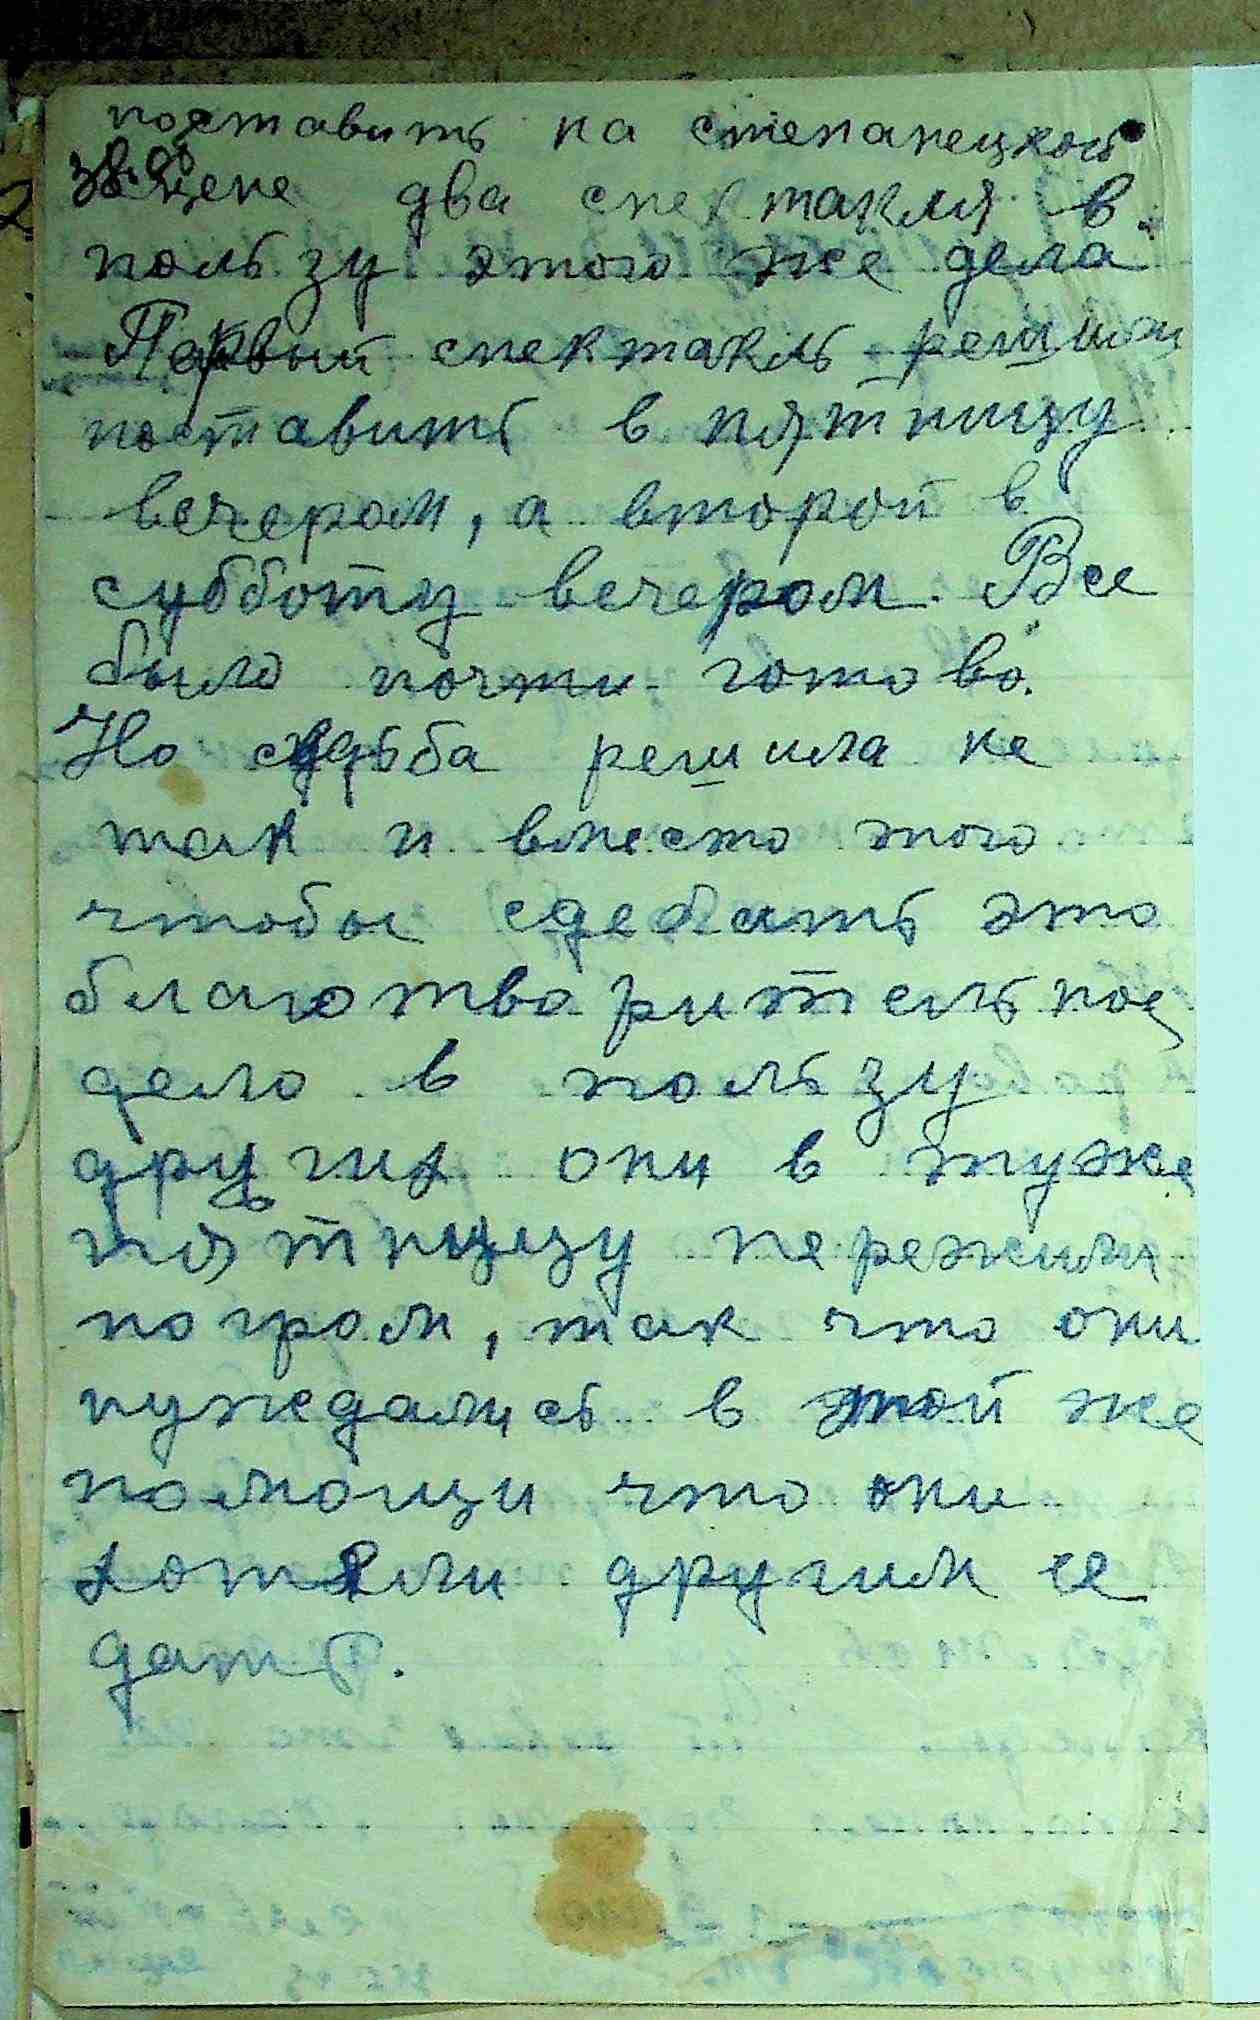 поставить на степанецкой
сцене два спектакля в
пользу этого же дела
Первый спектакль решили
поставить в пятницу
вечером, а второй в
субботу вечером. Все
было почти готово.
Но судьба решила не
так и вместо этого
чтобы сделать это
благотворительное
дело в пользу
других они в туже
пятницу пережили
погром, так что они
нуждались в той же
помощи что они
хотели другим ее
дать.